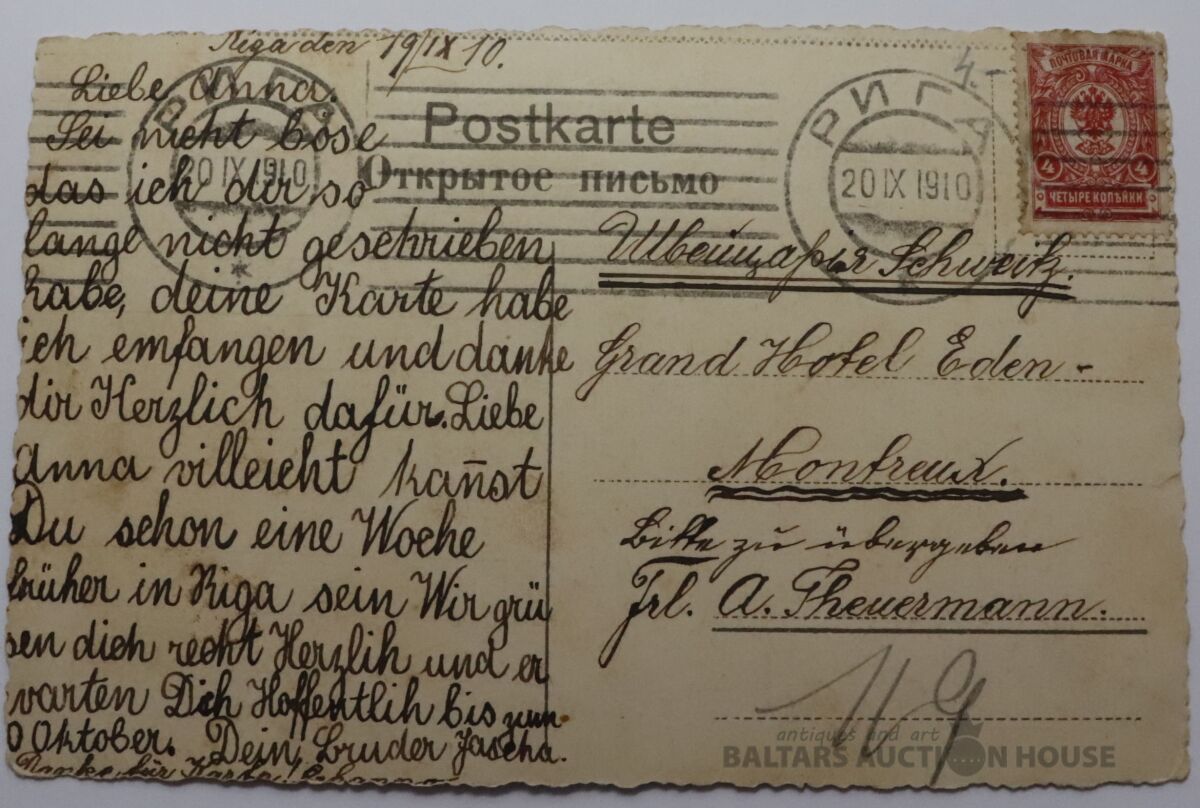 Riga den 19/IX 10.
Liebe Anna.
Sei nicht böse
das ich dir so
lange nicht geschrieben
habe, deine Karte habe
ich emfangen und danke
dir Herzlich dafür. Liebe
Anna villeicht kan̄st
Du schon eine Woche
früher in Riga sein Wir grü
sen dich recht Herzlih und er
warten Dich Hoffentlih bis zum
0 Oktober. Dein Bruder Jascha.
Postkarte
Открытое письмо
РИГА
20 IX 1910
РИГА
20 IX 1910
4.-
ПОЧТОВАЯ МАРКА
4 4
ЧЕТЫРЕ КОПѢЙКИ
Швейцарія Schweitz.
Grand Hotel Eden -
Montreux.
Bitte zu übergeben
Frl. A. Theuermann.
119
antiques and art
BALTARS AUCTION HOUSE